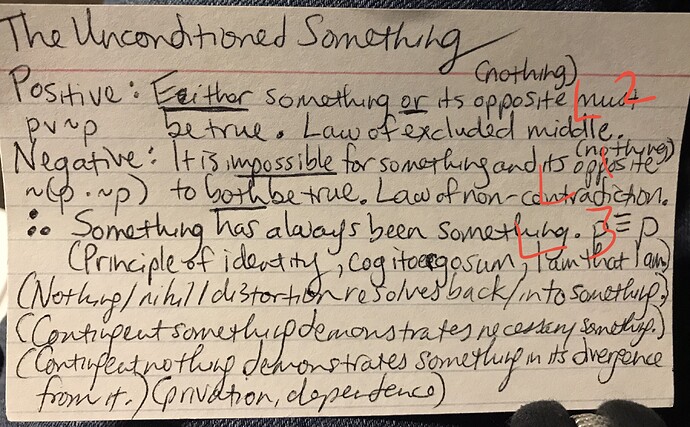 The Unconditioned Something
(nothing)
Positive: Eeither something or its opposite must L2
p v ~p be true. Law of excluded middle.
(nothing)
Negative: It is impossible for something and its opposite
~(p · ~p) to both be true. Law of non-contradiction. L1
∴ Something has always been something. p ≡ p L3
(Principle of identity, cogito ergo sum, I am that I am)
(Nothing/nihil/distortion resolves back/into something.)
(Contingent something demonstrates necessary something.)
(Contingent nothing demonstrates something in its divergence
from it.) (privation, dependence)